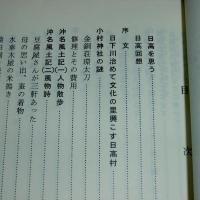 目次
日高を思う
日高回想
序文
日下川治めて文化の里興こす日高村
小村神社の謎
金銅荘環太刀
修理とその費用
沖名風土記(一)人物散歩
沖名風土記(二)風物詩
豆腐屋さんが三軒あった
母の思い出、蚕の着物
水車木尾の米搗き